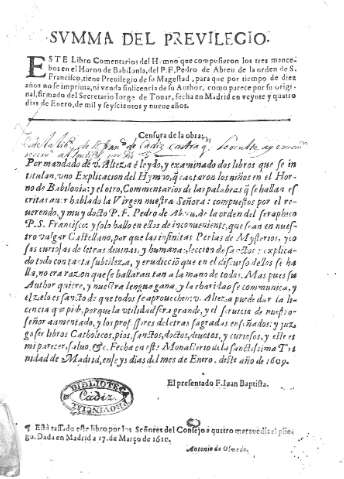 SVMMA DEL PREVILEGIO.
ESTE Libro Comentarios del Hymno que compusieron los tres mance-
bos en el Horno de Babilonia, del P. F. Pedro de Abreu de la orden de S.
Francisco, tiene Previlegio de su Magestad, para que por tiempo de diez
años no se imprima, ni venda sin licencia de su Author, como parece por su origi-
nal, firmado del Secretario Iorge de Touar, fecha en Madrid en veynte y quatro
dias de Enero, de mil y seyscientos y nueue años.
Censura de la obra.
de la
Por mandado de V. Alteza è leydo, y examinado dos libros que se in-
titulan, vno Explicacion del Hymno, que cantaron los niños en el Hor-
no de Babilonia; y el otro, Commentarios de las palabras que se hallan es-
critas auer hablado la Virgen nuestra Señora: compuestos por el re-
uerendo, y muy docto P. F. Pedro de Abreu, de la orden del seraphico
P. S. Francisco: y solo hallo en ellos de inconueniente, que sean en nues-
tro vulgar Castellano, por que las infinitas Perlas de Mysterios, y co-
sas curiosas de letras diuinas, y humanas, leccion de sanctos: explicando
todo con tanta subtileza, y erudicion que en el discurso dellos se ha-
lla, no era razon que se hallaran tan a la mano de todos. Mas pues su
Author quiere, y nuestra lengua gana, y la charidad se communica, y
el zelo es sancto de que todos se aprouechen. V. Alteza puede dar la li-
cencia que pide, porque la vtilidad sera grande, y el seruicio de nuestro
señor aumentado, y los professores de letras sagradas enseñados: y juz-
go ser libros Catholicos, pios, sanctos, doctos, deuotos, y curiosos, y este es
mi parecer, saluo, &c. Fecha en este Monasterio de la sanctissima Tri-
nidad de Madrid, en seys dias del mes de Enero, deste año de 1609.
El presentado F. Iuan Baptista.
BIBLIOTECA
Cadiz
PROVINCIAL
¶ Está tassado este libro por los Señores del Consejo a quatro marauedis el plie-
go. Dada en Madrid a 17. de Março de 1610.
Antonio de Olmedo.